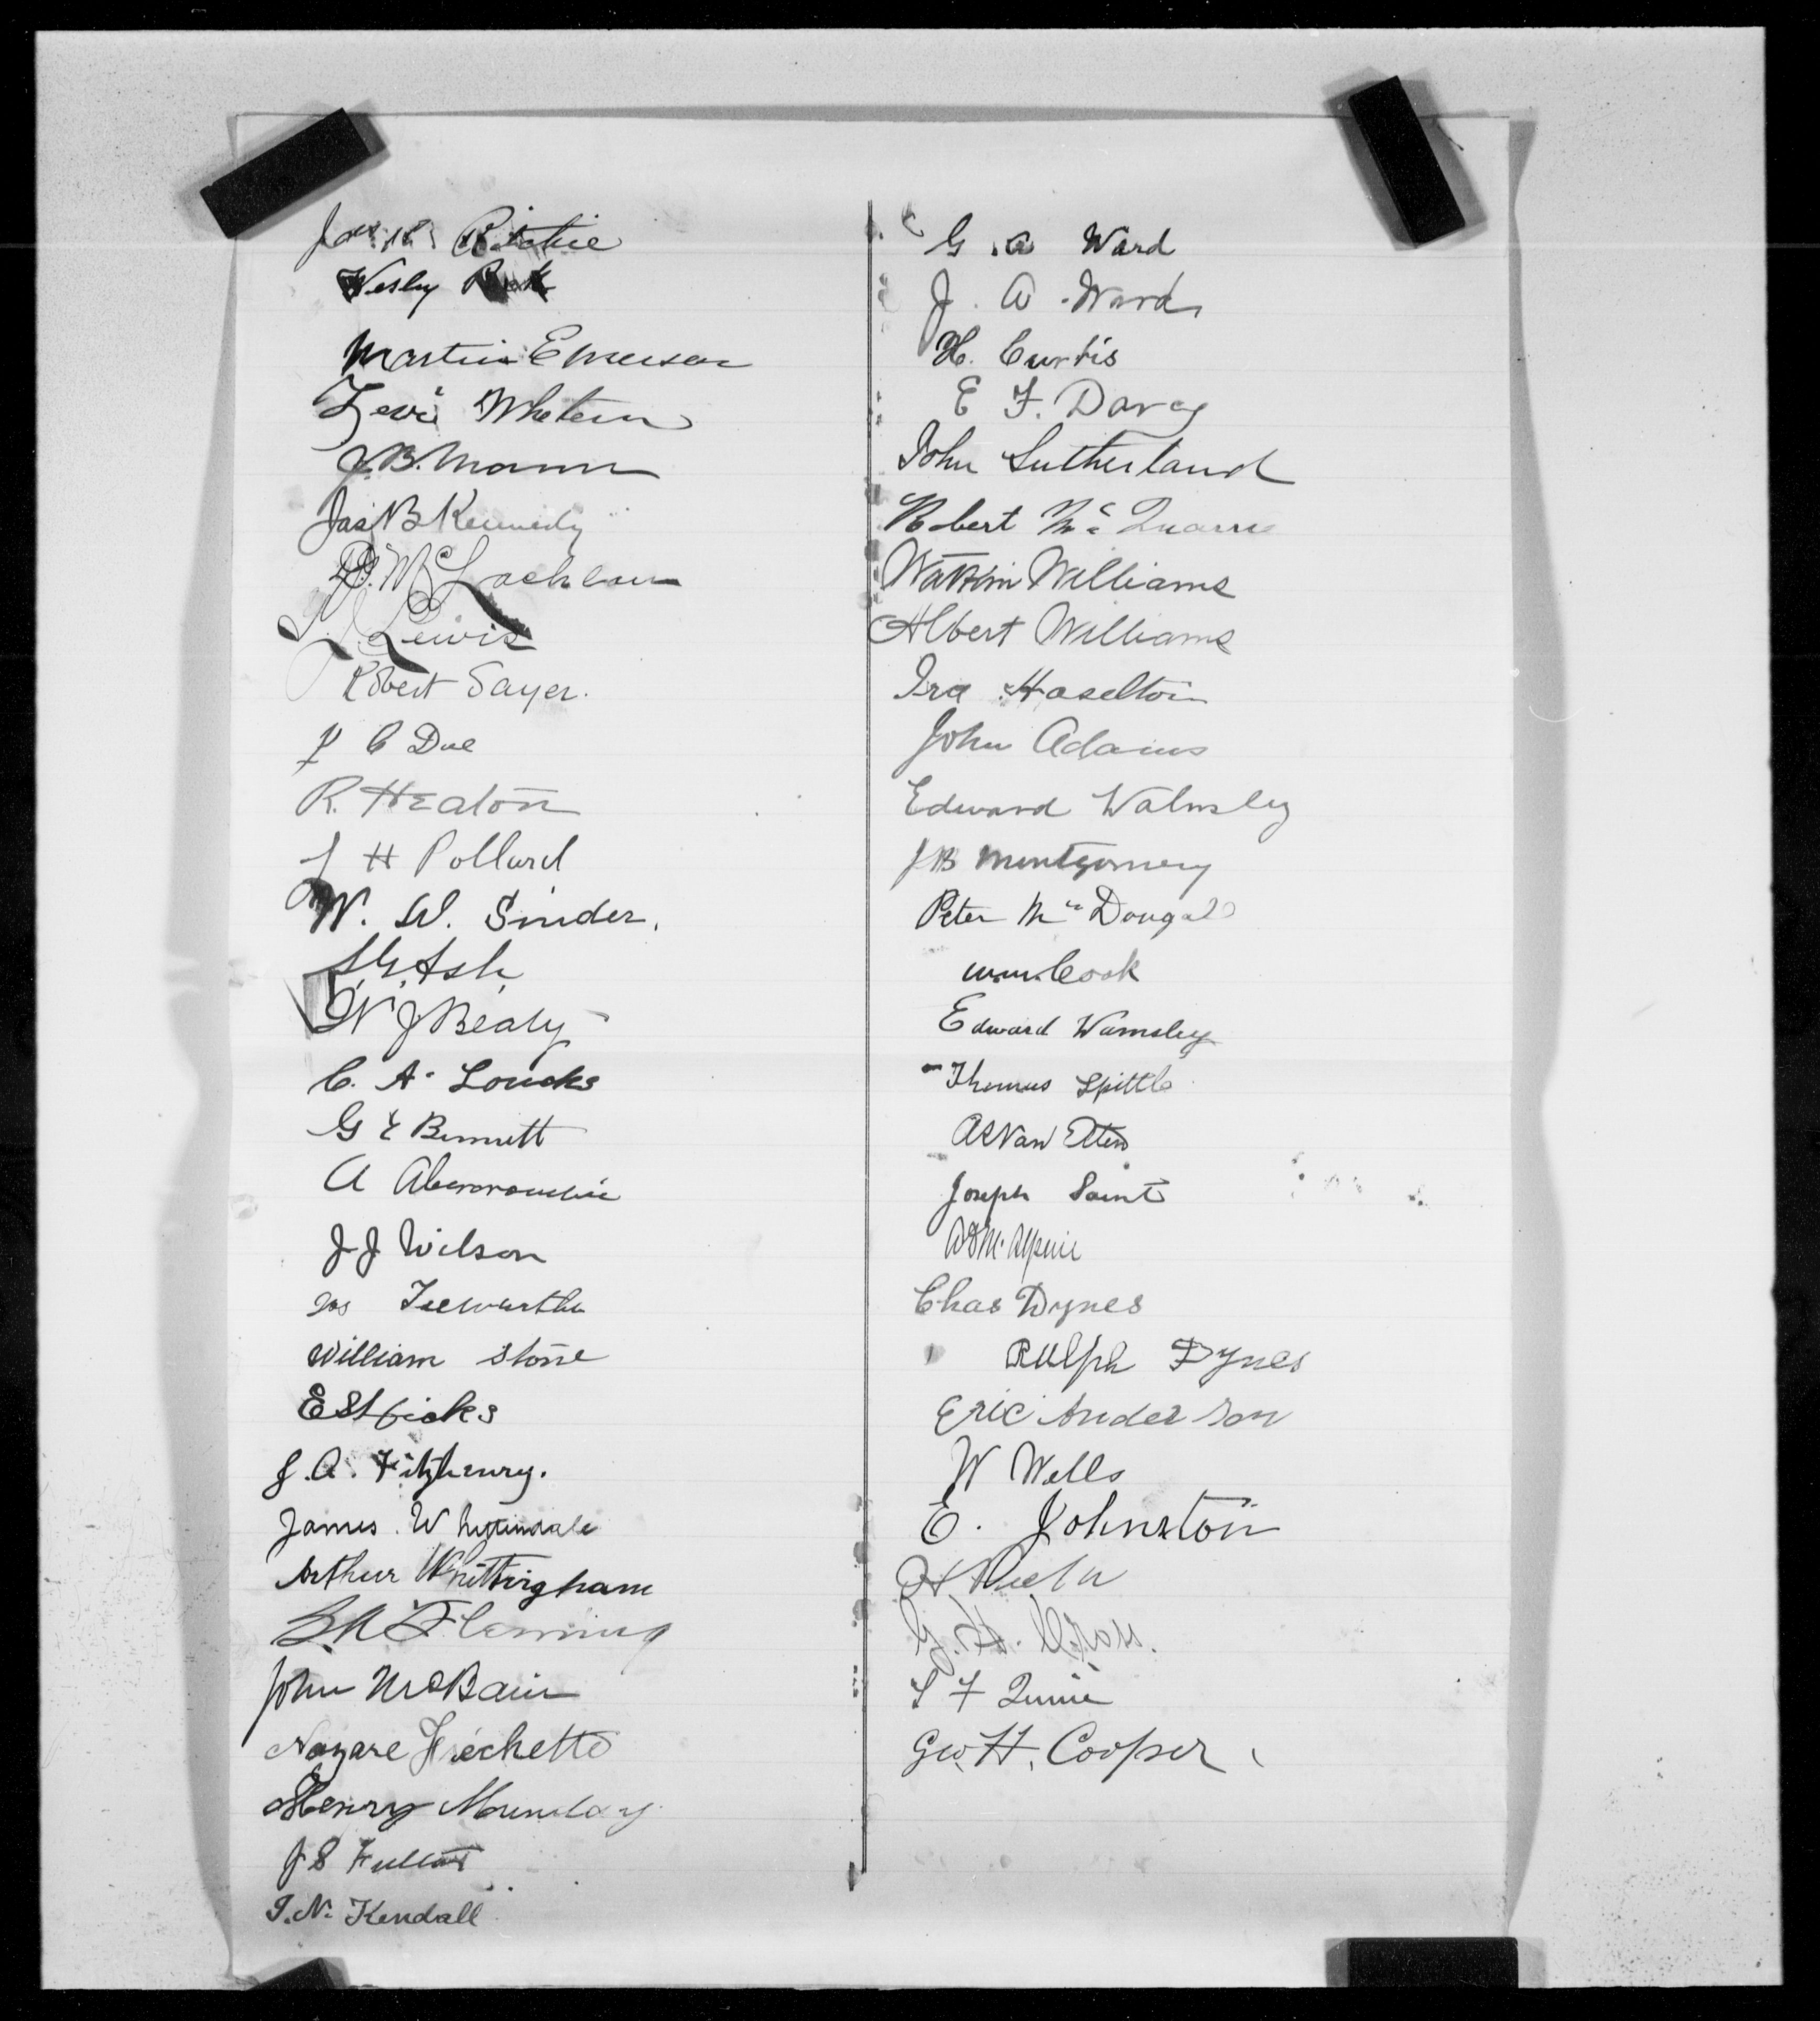 Ritchie
Wesly
Martin Emerson
Levi Wheteur
J. B. Mann
Jas B Kennedy
D. McLachlan
Lewis
Robert Sayer.
J C Due
R. Heaton
J H Pollard
W. W. Sinder.
S. G. Ash
W J Bealy
C. A. Loucks
G E Bennett
A Abercrombie
J J Wilson
Jos
William Stone
E S Hicks
J. A. Fitzhenry.
James. W
Arthur Whittingham
Fleming
John McBain
Nazare Frechette
Henry Munday.
J S
T. N. Kendall
G. A Ward
J. A. Ward
H. Curtis
E F. Darcy
John Sutherland
Robert Mc Quarrie
Watkin Williams
Albert Williams
Ira Haselton
John Adams
Edward Walmsley
J B Montgomery
Peter Mc Dougal
Wm. Cook
Edward Wamsley
Thomas Spittle
Van Etten
Joseph Saint
McAlpine
Chas Dynes
Ralph Dynes
Eric Anderson
W Wells
E. Johnston
G. H.
S F
Geo. H. Cooper